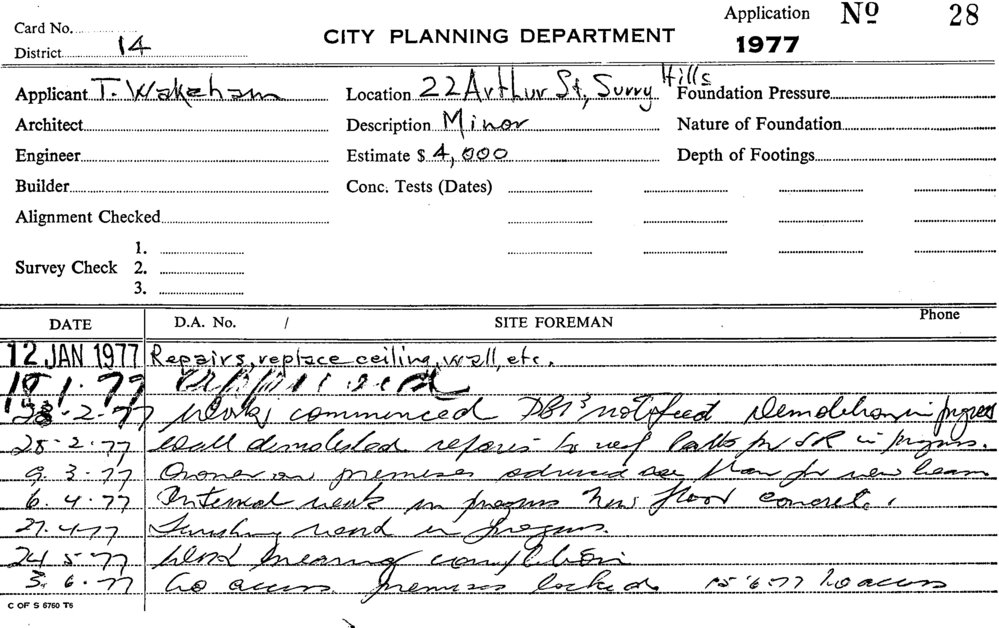 Card No.
District 14
CITY PLANNING DEPARTMENT
Application No 28
1977
Applicant T. Wakeham
Location 22 Arthur St, Surry Hills
Foundation Pressure
Architect
Description Minor
Nature of Foundation
Engineer
Estimate $ 4,000
Depth of Footings
Builder
Conc. Tests (Dates)
Alignment Checked
Survey Check 1. 2. 3.
DATE D.A. No. / SITE FOREMAN Phone
12 JAN 1977 Repairs, replace ceiling, wall, etc.
1.77 Approved
2.77 Work commenced notified Demolition in progress
28.2.77 Wall demolished repairs to in progress.
9.3.77 Owner on premises advised see plan for new beam
6.4.77 Internal work in progress New floor concrete.
27.4.77 Finishing work in progress.
24.5.77 Work nearing completion
3.6.77 No access premises locked 15.6.77 No access
C OF S 6760 T6